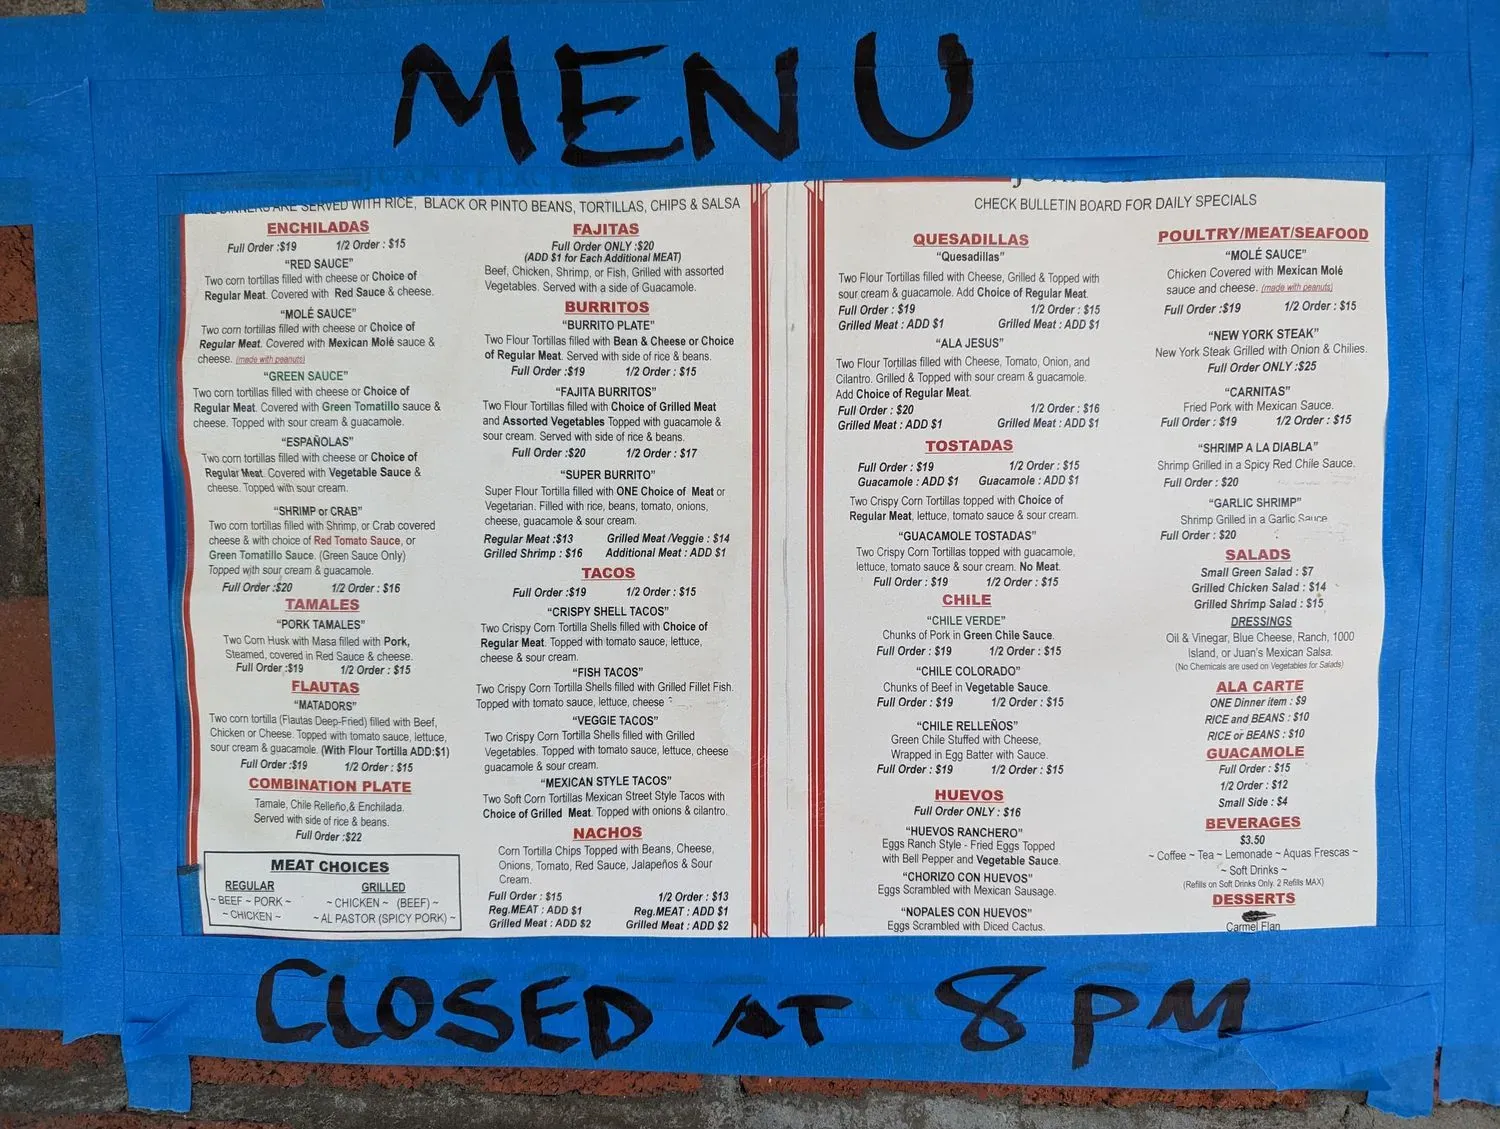 MENU
ALL DINNERS ARE SERVED WITH RICE, BLACK OR PINTO BEANS, TORTILLAS, CHIPS & SALSA
ENCHILADAS
Full Order :$19 1/2 Order : $15
"RED SAUCE"
Two corn tortillas filled with cheese or Choice of
Regular Meat. Covered with Red Sauce & cheese.
"MOLÉ SAUCE"
Two corn tortillas filled with cheese or Choice of
Regular Meat. Covered with Mexican Molé sauce &
cheese. (made with peanuts)
"GREEN SAUCE"
Two corn tortillas filled with cheese or Choice of
Regular Meat. Covered with Green Tomatillo sauce &
cheese. Topped with sour cream & guacamole.
"ESPAÑOLAS"
Two corn tortillas filled with cheese or Choice of
Regular Meat. Covered with Vegetable Sauce &
cheese. Topped with sour cream.
"SHRIMP or CRAB"
Two corn tortillas filled with Shrimp, or Crab covered
cheese & with choice of Red Tomato Sauce, or
Green Tomatillo Sauce. (Green Sauce Only)
Topped with sour cream & guacamole.
Full Order :$20 1/2 Order : $16
TAMALES
"PORK TAMALES"
Two Corn Husk with Masa filled with Pork,
Steamed, covered in Red Sauce & cheese.
Full Order :$19 1/2 Order : $15
FLAUTAS
"MATADORS"
Two corn tortilla (Flautas Deep-Fried) filled with Beef,
Chicken or Cheese. Topped with tomato sauce, lettuce,
sour cream & guacamole. (With Flour Tortilla ADD:$1)
Full Order :$19 1/2 Order : $15
COMBINATION PLATE
Tamale, Chile Relleño,& Enchilada.
Served with side of rice & beans.
Full Order :$22
MEAT CHOICES
REGULAR GRILLED
~ BEEF ~ PORK ~ ~ CHICKEN ~ (BEEF) ~
~ CHICKEN ~ ~ AL PASTOR (SPICY PORK) ~
FAJITAS
Full Order ONLY :$20
(ADD $1 for Each Additional MEAT)
Beef, Chicken, Shrimp, or Fish, Grilled with assorted
Vegetables. Served with a side of Guacamole.
BURRITOS
"BURRITO PLATE"
Two Flour Tortillas filled with Bean & Cheese or Choice
of Regular Meat. Served with side of rice & beans.
Full Order :$19 1/2 Order : $15
"FAJITA BURRITOS"
Two Flour Tortillas filled with Choice of Grilled Meat
and Assorted Vegetables Topped with guacamole &
sour cream. Served with side of rice & beans.
Full Order :$20 1/2 Order : $17
"SUPER BURRITO"
Super Flour Tortilla filled with ONE Choice of Meat or
Vegetarian. Filled with rice, beans, tomato, onions,
cheese, guacamole & sour cream.
Regular Meat :$13 Grilled Meat /Veggie : $14
Grilled Shrimp : $16 Additional Meat : ADD $1
TACOS
Full Order :$19 1/2 Order : $15
"CRISPY SHELL TACOS"
Two Crispy Corn Tortilla Shells filled with Choice of
Regular Meat. Topped with tomato sauce, lettuce,
cheese & sour cream.
"FISH TACOS"
Two Crispy Corn Tortilla Shells filled with Grilled Fillet Fish.
Topped with tomato sauce, lettuce, cheese
"VEGGIE TACOS"
Two Crispy Corn Tortilla Shells filled with Grilled
Vegetables. Topped with tomato sauce, lettuce, cheese
guacamole & sour cream.
"MEXICAN STYLE TACOS"
Two Soft Corn Tortillas Mexican Street Style Tacos with
Choice of Grilled Meat. Topped with onions & cilantro.
NACHOS
Corn Tortilla Chips Topped with Beans, Cheese,
Onions, Tomato, Red Sauce, Jalapeños & Sour
Cream.
Full Order : $15 1/2 Order : $13
Reg.MEAT : ADD $1 Reg.MEAT : ADD $1
Grilled Meat : ADD $2 Grilled Meat : ADD $2
CHECK BULLETIN BOARD FOR DAILY SPECIALS
QUESADILLAS
"Quesadillas"
Two Flour Tortillas filled with Cheese, Grilled & Topped with
sour cream & guacamole. Add Choice of Regular Meat.
Full Order : $19 1/2 Order : $15
Grilled Meat : ADD $1 Grilled Meat : ADD $1
"ALA JESUS"
Two Flour Tortillas filled with Cheese, Tomato, Onion, and
Cilantro. Grilled & Topped with sour cream & guacamole.
Add Choice of Regular Meat.
Full Order : $20 1/2 Order : $16
Grilled Meat : ADD $1 Grilled Meat : ADD $1
TOSTADAS
Full Order : $19 1/2 Order : $15
Guacamole : ADD $1 Guacamole : ADD $1
Two Crispy Corn Tortillas topped with Choice of
Regular Meat, lettuce, tomato sauce & sour cream.
"GUACAMOLE TOSTADAS"
Two Crispy Corn Tortillas topped with guacamole,
lettuce, tomato sauce & sour cream. No Meat.
Full Order : $19 1/2 Order : $15
CHILE
"CHILE VERDE"
Chunks of Pork in Green Chile Sauce.
Full Order : $19 1/2 Order : $15
"CHILE COLORADO"
Chunks of Beef in Vegetable Sauce.
Full Order : $19 1/2 Order : $15
"CHILE RELLEÑOS"
Green Chile Stuffed with Cheese,
Wrapped in Egg Batter with Sauce.
Full Order : $19 1/2 Order : $15
HUEVOS
Full Order ONLY : $16
"HUEVOS RANCHERO"
Eggs Ranch Style - Fried Eggs Topped
with Bell Pepper and Vegetable Sauce.
"CHORIZO CON HUEVOS"
Eggs Scrambled with Mexican Sausage.
"NOPALES CON HUEVOS"
Eggs Scrambled with Diced Cactus.
POULTRY/MEAT/SEAFOOD
"MOLÉ SAUCE"
Chicken Covered with Mexican Molé
sauce and cheese. (made with peanuts)
Full Order :$19 1/2 Order : $15
"NEW YORK STEAK"
New York Steak Grilled with Onion & Chilies.
Full Order ONLY :$25
"CARNITAS"
Fried Pork with Mexican Sauce.
Full Order : $19 1/2 Order : $15
"SHRIMP A LA DIABLA"
Shrimp Grilled in a Spicy Red Chile Sauce.
Full Order : $20
"GARLIC SHRIMP"
Shrimp Grilled in a Garlic Sauce
Full Order : $20
SALADS
Small Green Salad : $7
Grilled Chicken Salad : $14
Grilled Shrimp Salad : $15
DRESSINGS
Oil & Vinegar, Blue Cheese, Ranch, 1000
Island, or Juan's Mexican Salsa.
(No Chemicals are used on Vegetables for Salads)
ALA CARTE
ONE Dinner item : $9
RICE and BEANS : $10
RICE or BEANS : $10
GUACAMOLE
Full Order : $15
1/2 Order : $12
Small Side : $4
BEVERAGES
$3.50
~ Coffee ~ Tea ~ Lemonade ~ Aquas Frescas ~
~ Soft Drinks ~
(Refills on Soft Drinks Only. 2 Refills MAX)
DESSERTS
Carmel Flan
CLOSED AT 8 PM